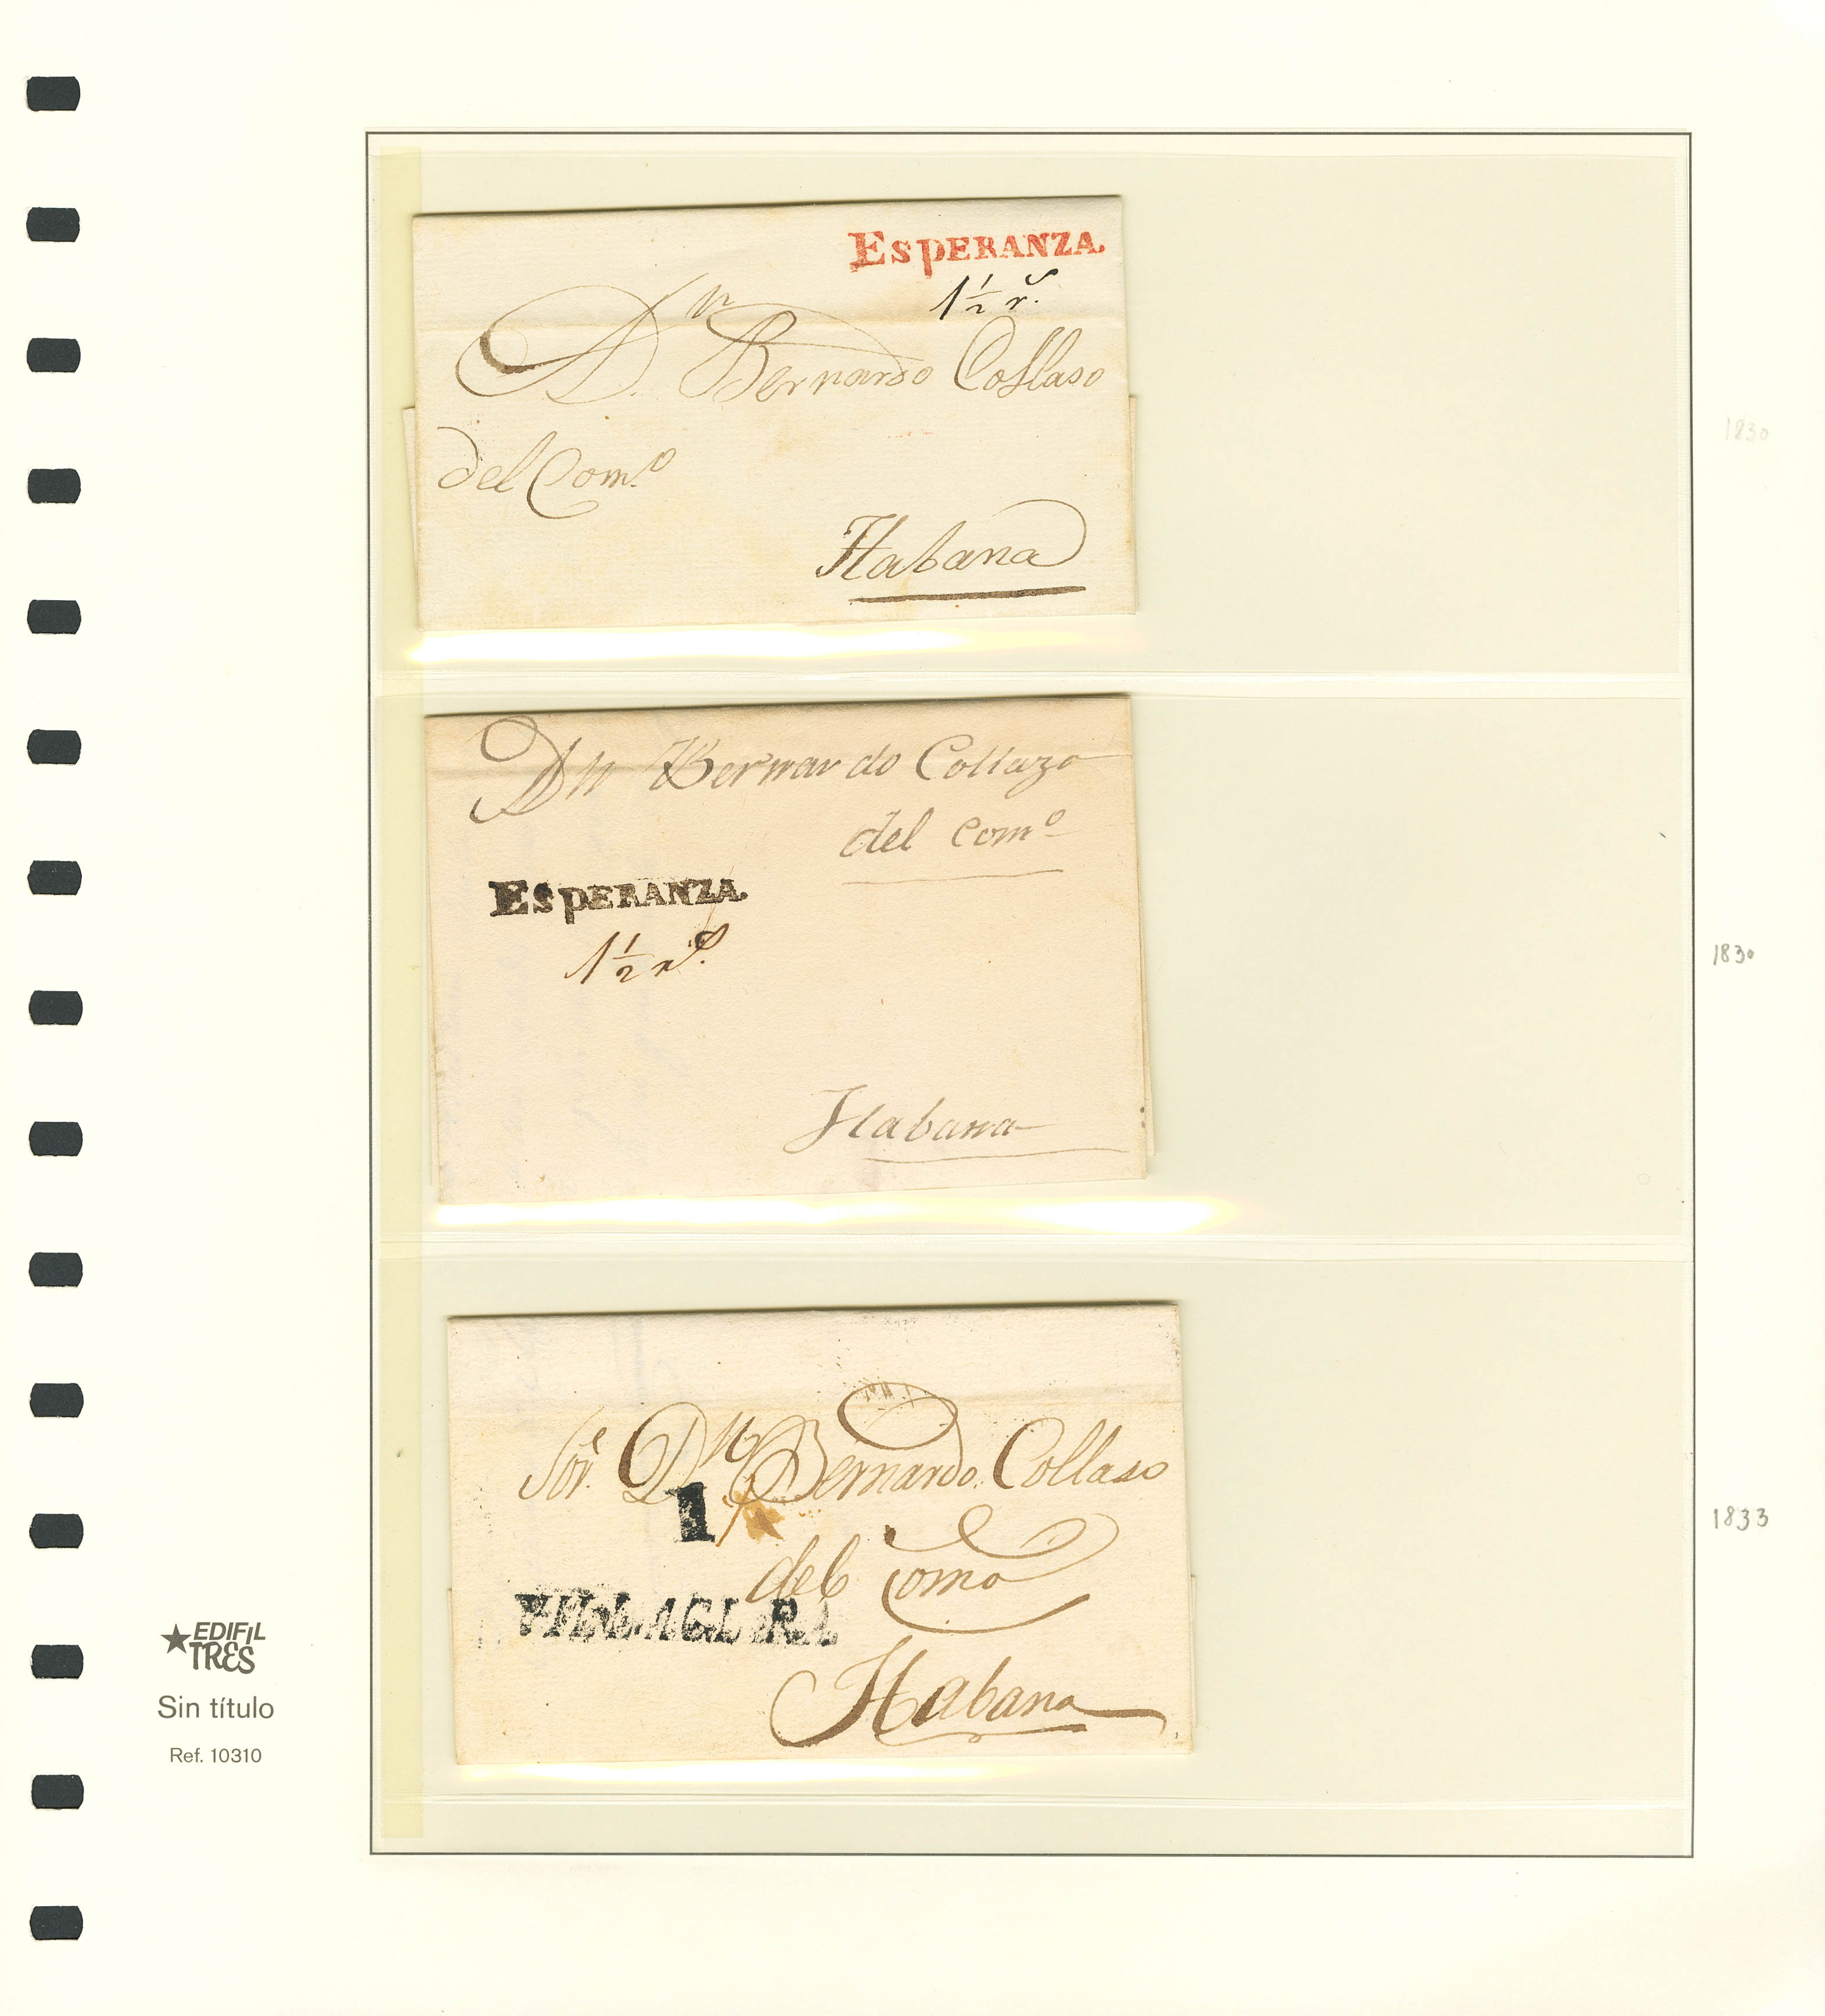 EsPERANZA.
1½ rs.
Dn. Bernardo Collaso
del Como.
Habana
1830
Dn Bernardo Collazo
del Como
EsPERANZA.
1½ rs.
Habana
1830
Sor. Dn Bernardo Collaso
1
del Como
VILLACLARA
Habana
1833
EDIFIL
TRES
Sin título
Ref. 10310